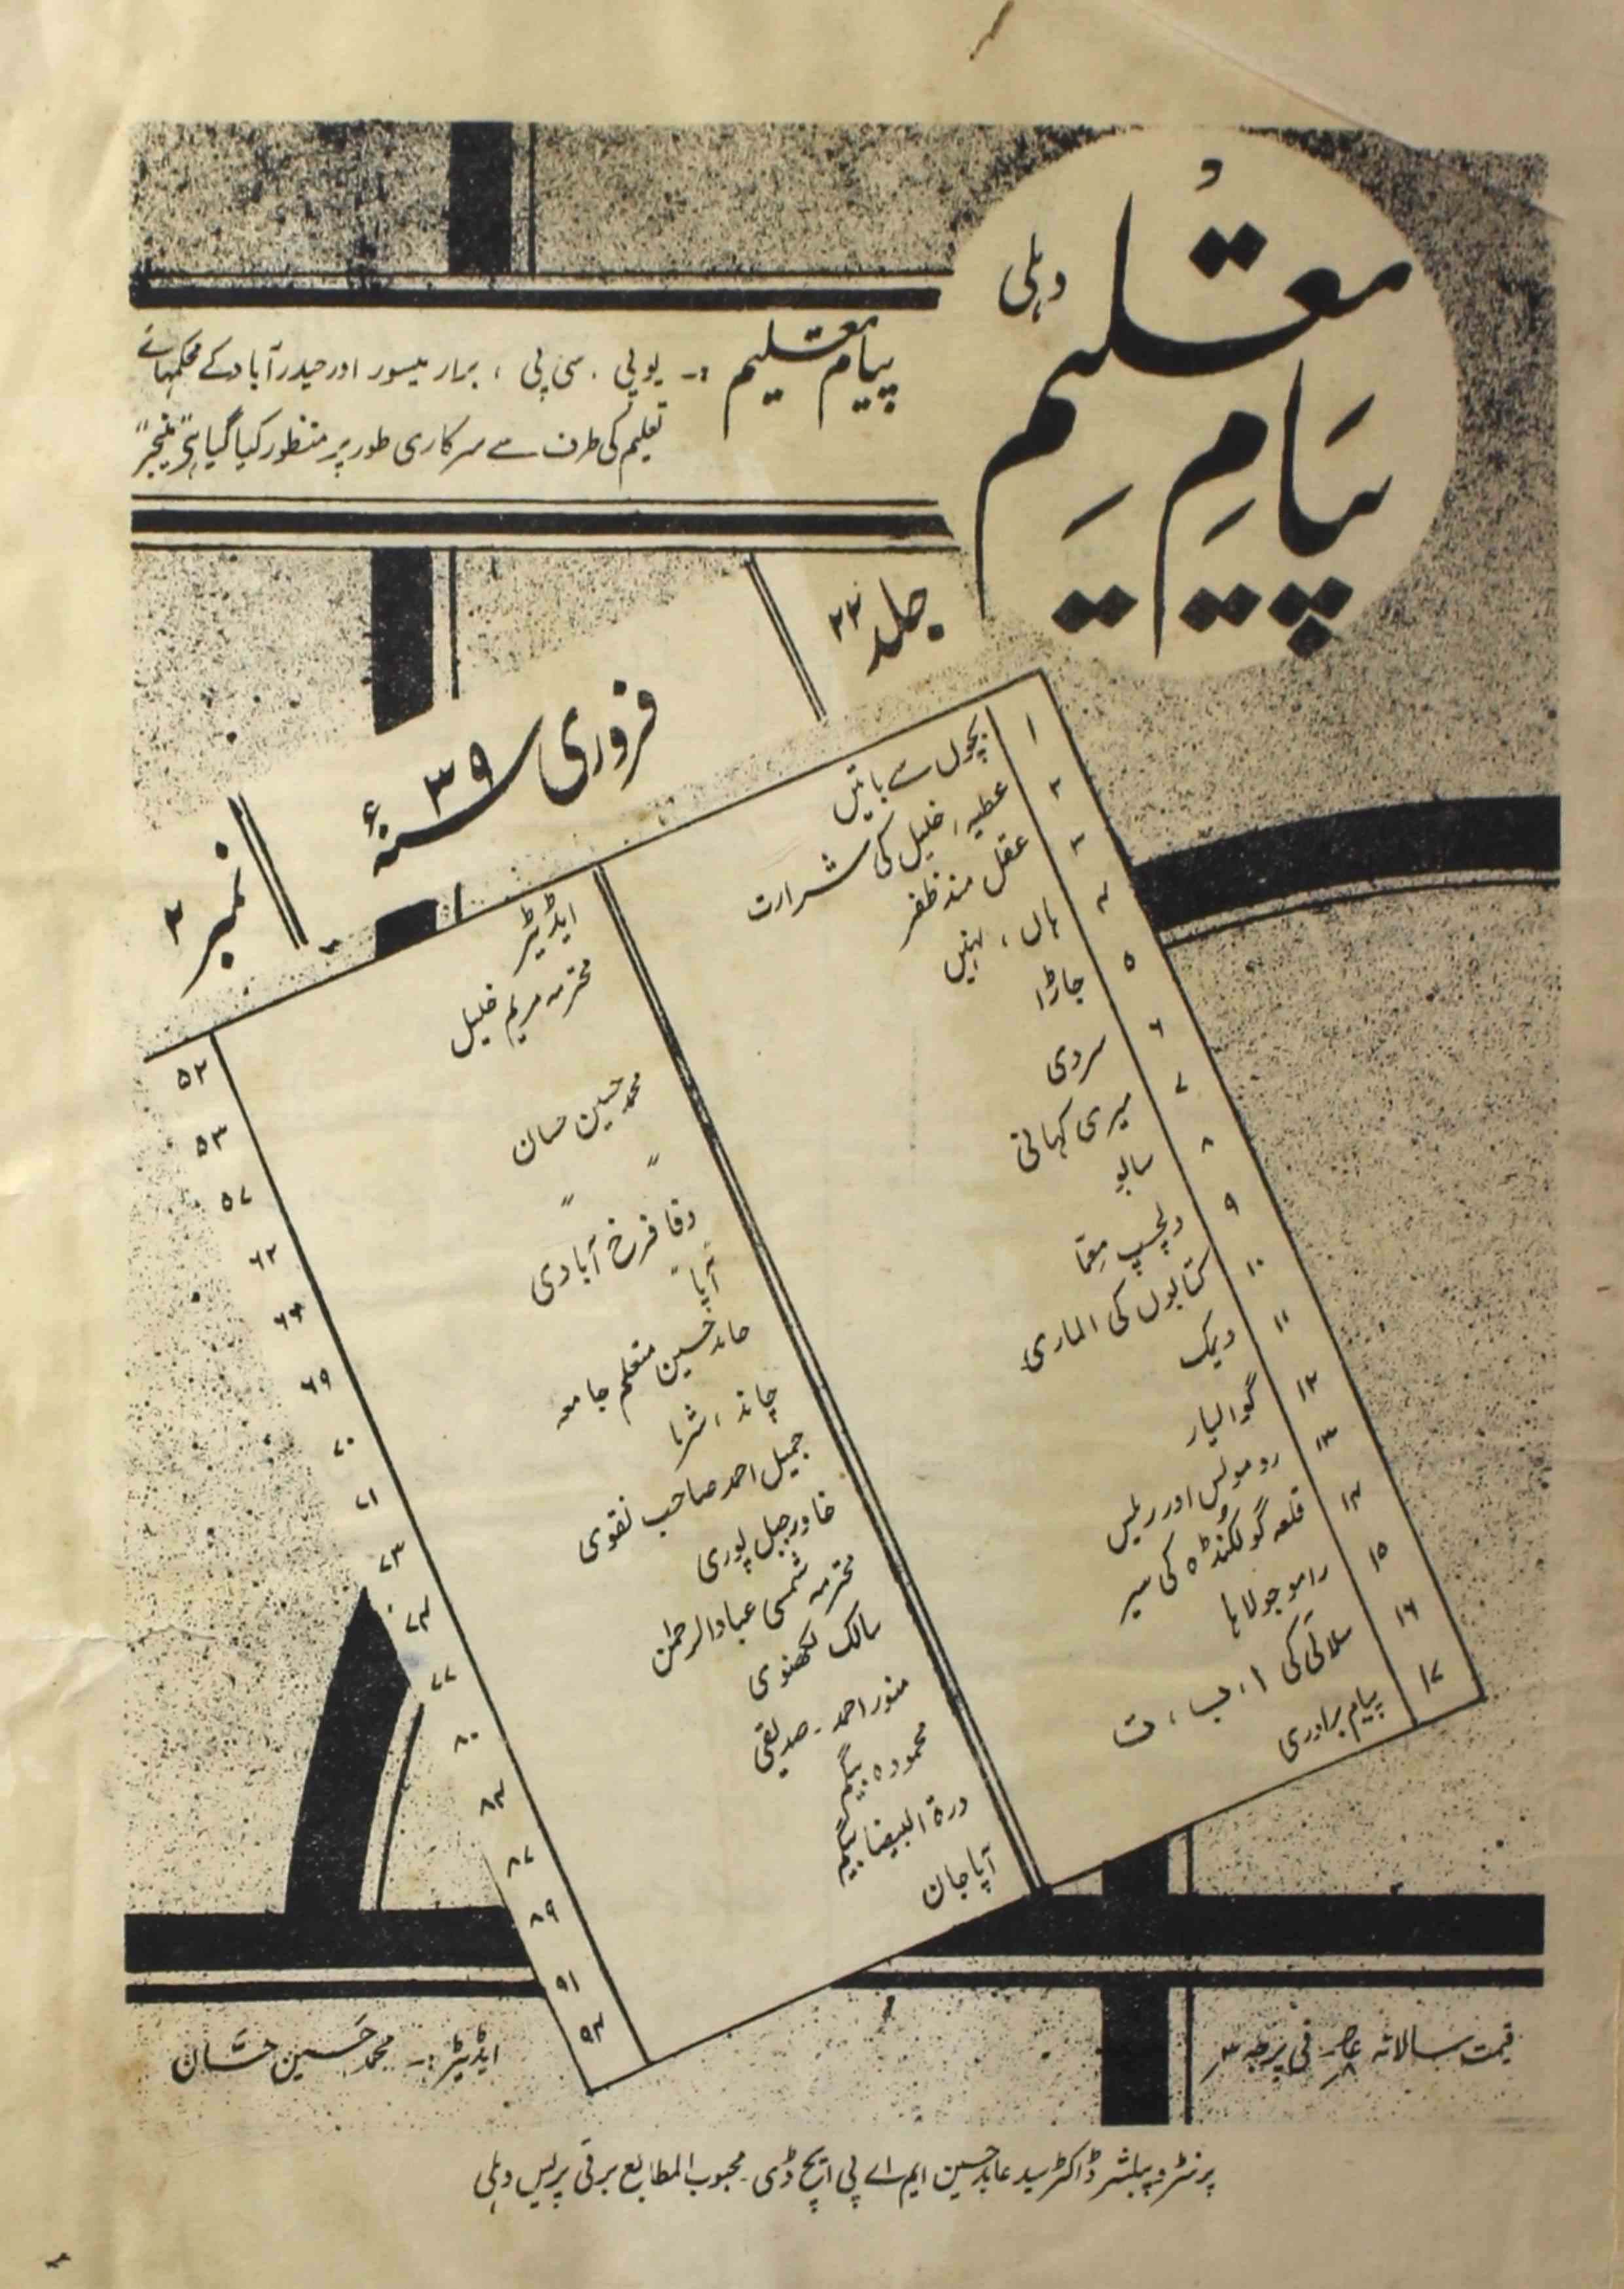 پیامِ تعلیم
دہلی
پیام تعلیم :- یو پی ، سی پی ، برار میسور اور حیدرآباد کے محکمہائے
تعلیم کی طرف سے سرکاری طور پر منظور کیا گیا ہے "منیجر"
جلد ۲۲
فروری ۳۹ سنہء
نمبر ۲
۱ بچوں سے باتیں ایڈیٹر ۵۲
۲ عطیہ، خلیل کی شرارت محترمہ مریم خلیل ۵۳
۳ عقل مند ظفر محمد حسین حسان ۵۷
۴ ہاں ، نہیں " ۶۲
۵ جاڑا "
۶ سردی وفا فرخ آبادی ۶۹
۷ میری کہانی "آپا" ۷۰
۸ سابو حامد حسین متعلم جامعہ ۷۱
۹ دلچسپ معما چاند ، شرما ۷۳
۱۰ کتابوں کی الماری جمیل احمد صاحب نقوی ۷۴
۱۱ دیمک خاور جبل پوری ۷۷
۱۲ گوالیار محترمہ شمسی عباد الرحمٰن ۸۰
۱۳ رومولس اور ریمس سالک لکھنوی ۸۴
۱۴ قلعہ گولکنڈہ کی سیر منور احمد - صدیقی ۸۷
۱۵ رامو جولاہا محمودہ بیگم ۸۹
۱۶ سلائی کی ا ، ب ، ت درۃ البیضا بیگم ۹۱
۱۷ پیام برادری آپا جان ۹۴
قیمت سالانہ فی پرچہ ۳
ایڈیٹر :- محمد حسین حسّان
پرنٹر و پبلشر ڈاکٹر سید عابد حسین ایم اے پی ایچ ڈی - محبوب المطابع برقی پریس دہلی